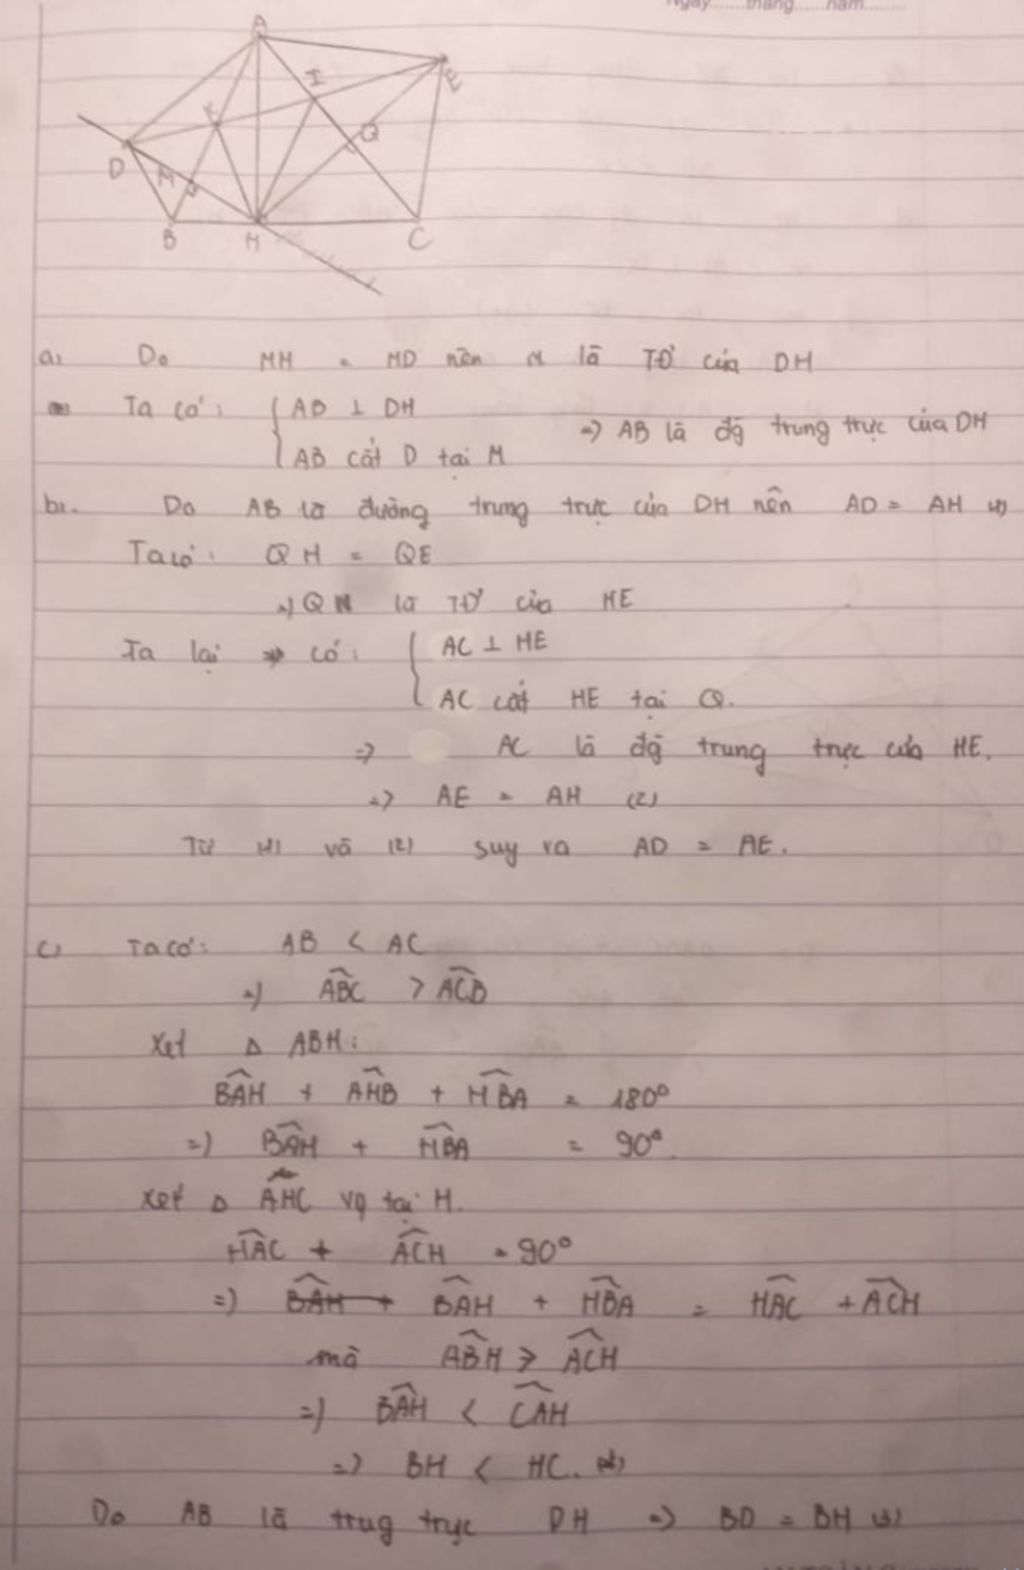 Ngày......tháng.....năm........
A
I
E
K
Q
D
M
B
H
C
a) Do MH = MD nên M là TĐ' của DH
Ta có: { AB ⊥ DH
AB cắt D tại M => AB là đg trung trực của DH
b). Do AB là đường trung trực của DH nên AD = AH (1)
Ta có: QH = QE
=) Q là TĐ' của HE
Ta lại có: { AC ⊥ HE
AC cắt HE tại Q.
=> AC là đg trung trực của HE.
=> AE = AH (2)
Từ (1) và (2) suy ra AD = AE.
c) Ta có: AB < AC
=) ABC > ACB
Xét Δ ABH:
BAH + AHB + HBA = 180°
=) BAH + HBA = 90°.
Xét Δ AHC vg tại H.
HAC + ACH = 90°
=) BAH + BAH + HBA = HAC + ACH
mà ABH > ACH
=) BAH < CAH
=> BH < HC.
Do AB là trug trực DH => BD = BH (3)